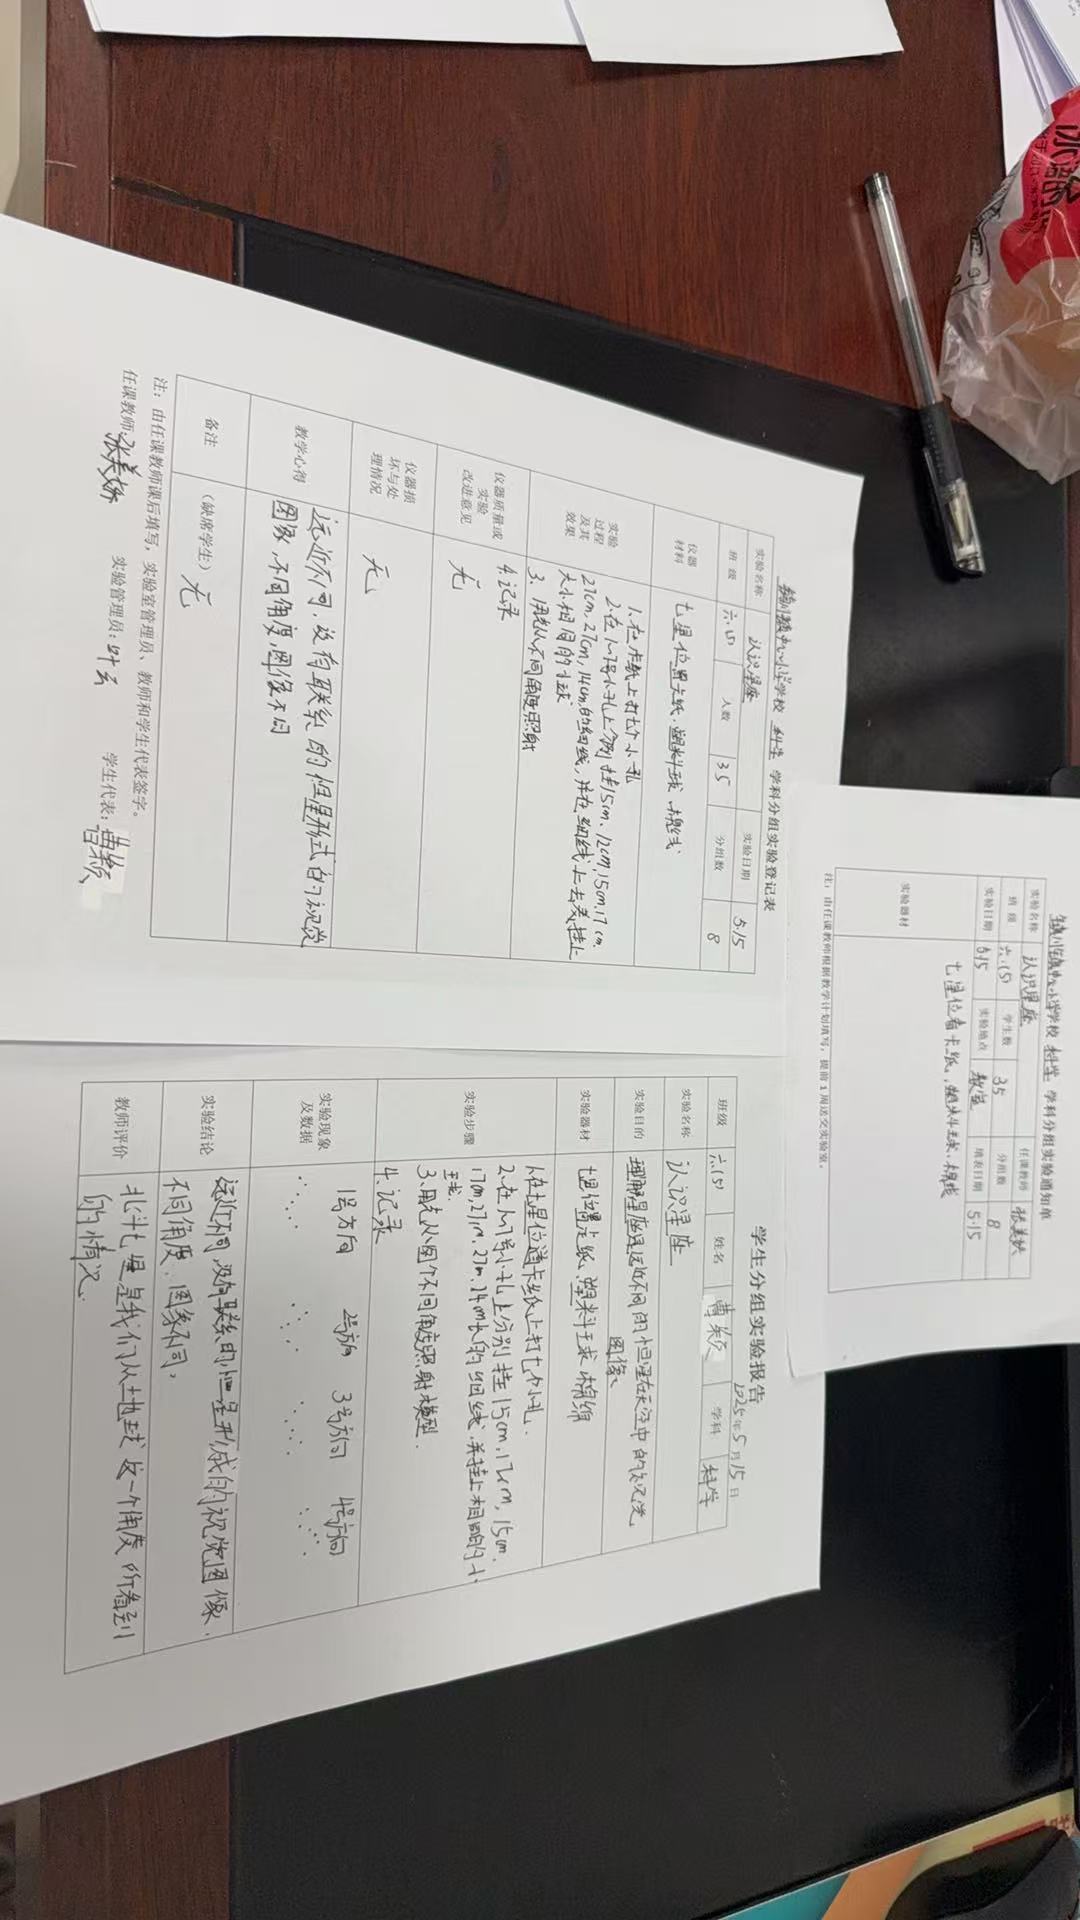 学科分组实验登记表
实验名称 认识星座 实验日期 5.15
班级 六.(5) 人数 35 分组数 8
仪器材料 七星位置卡纸、塑料球、棉线
实验过程及其效果
1.在卡纸上打七个小孔
2.在1~7号小孔上分别挂15cm、12cm,15cm.17cm.
27cm.27cm,14cm的细线,并在细线上去挂上
大小相同的小球
3.用光从不同角度照射
4.记录
仪器质量或实验改进意见 无
仪器损坏与处理情况 无
教学心得 远近不同,没有联系的恒星形式的视觉
图象,不同角度,图像不同
备注 (缺席学生) 无
注:由任课教师课后填写,实验室管理员、教师和学生代表签字。
任课教师: 实验管理员:叶云 学生代表:曹
小学学校 科学 学科分组实验通知单
实验名称 认识星座 任课教师
班级 六.(5) 学生数 35 分组数 8
实验日期 5.15 实验地点 教室 填表日期 5.15
实验器材 七星位置卡纸、塑料球、棉线
注:由任课教师根据教学计划填写,提前1周送交实验室。
学生分组实验报告
2025年5月15日
班级 六.(5) 姓名 曹 学科 科学
实验名称 认识星座
实验目的 理解星座是远近不同的恒星在天空中的视觉
图像、
实验器材 七星位置卡纸、塑料球 棉绳
实验步骤
1.在七星位置卡纸上打七个小孔.
2.在1~7号小孔上分别挂15cm,12cm,15cm.
17cm,27cm.27cm.24cm长的细线.并挂上相同的小
球.
3.用光从四个不同角度照射模型.
4.记录
实验现象及数据 1号方向 2号方向 3号方向 4号方向
实验结论 远近不同 没有联系的恒星形成的视觉图像.
不同角度.图象不同,
教师评价 北斗七星是我们从地球这一个角度所看到
的情况.